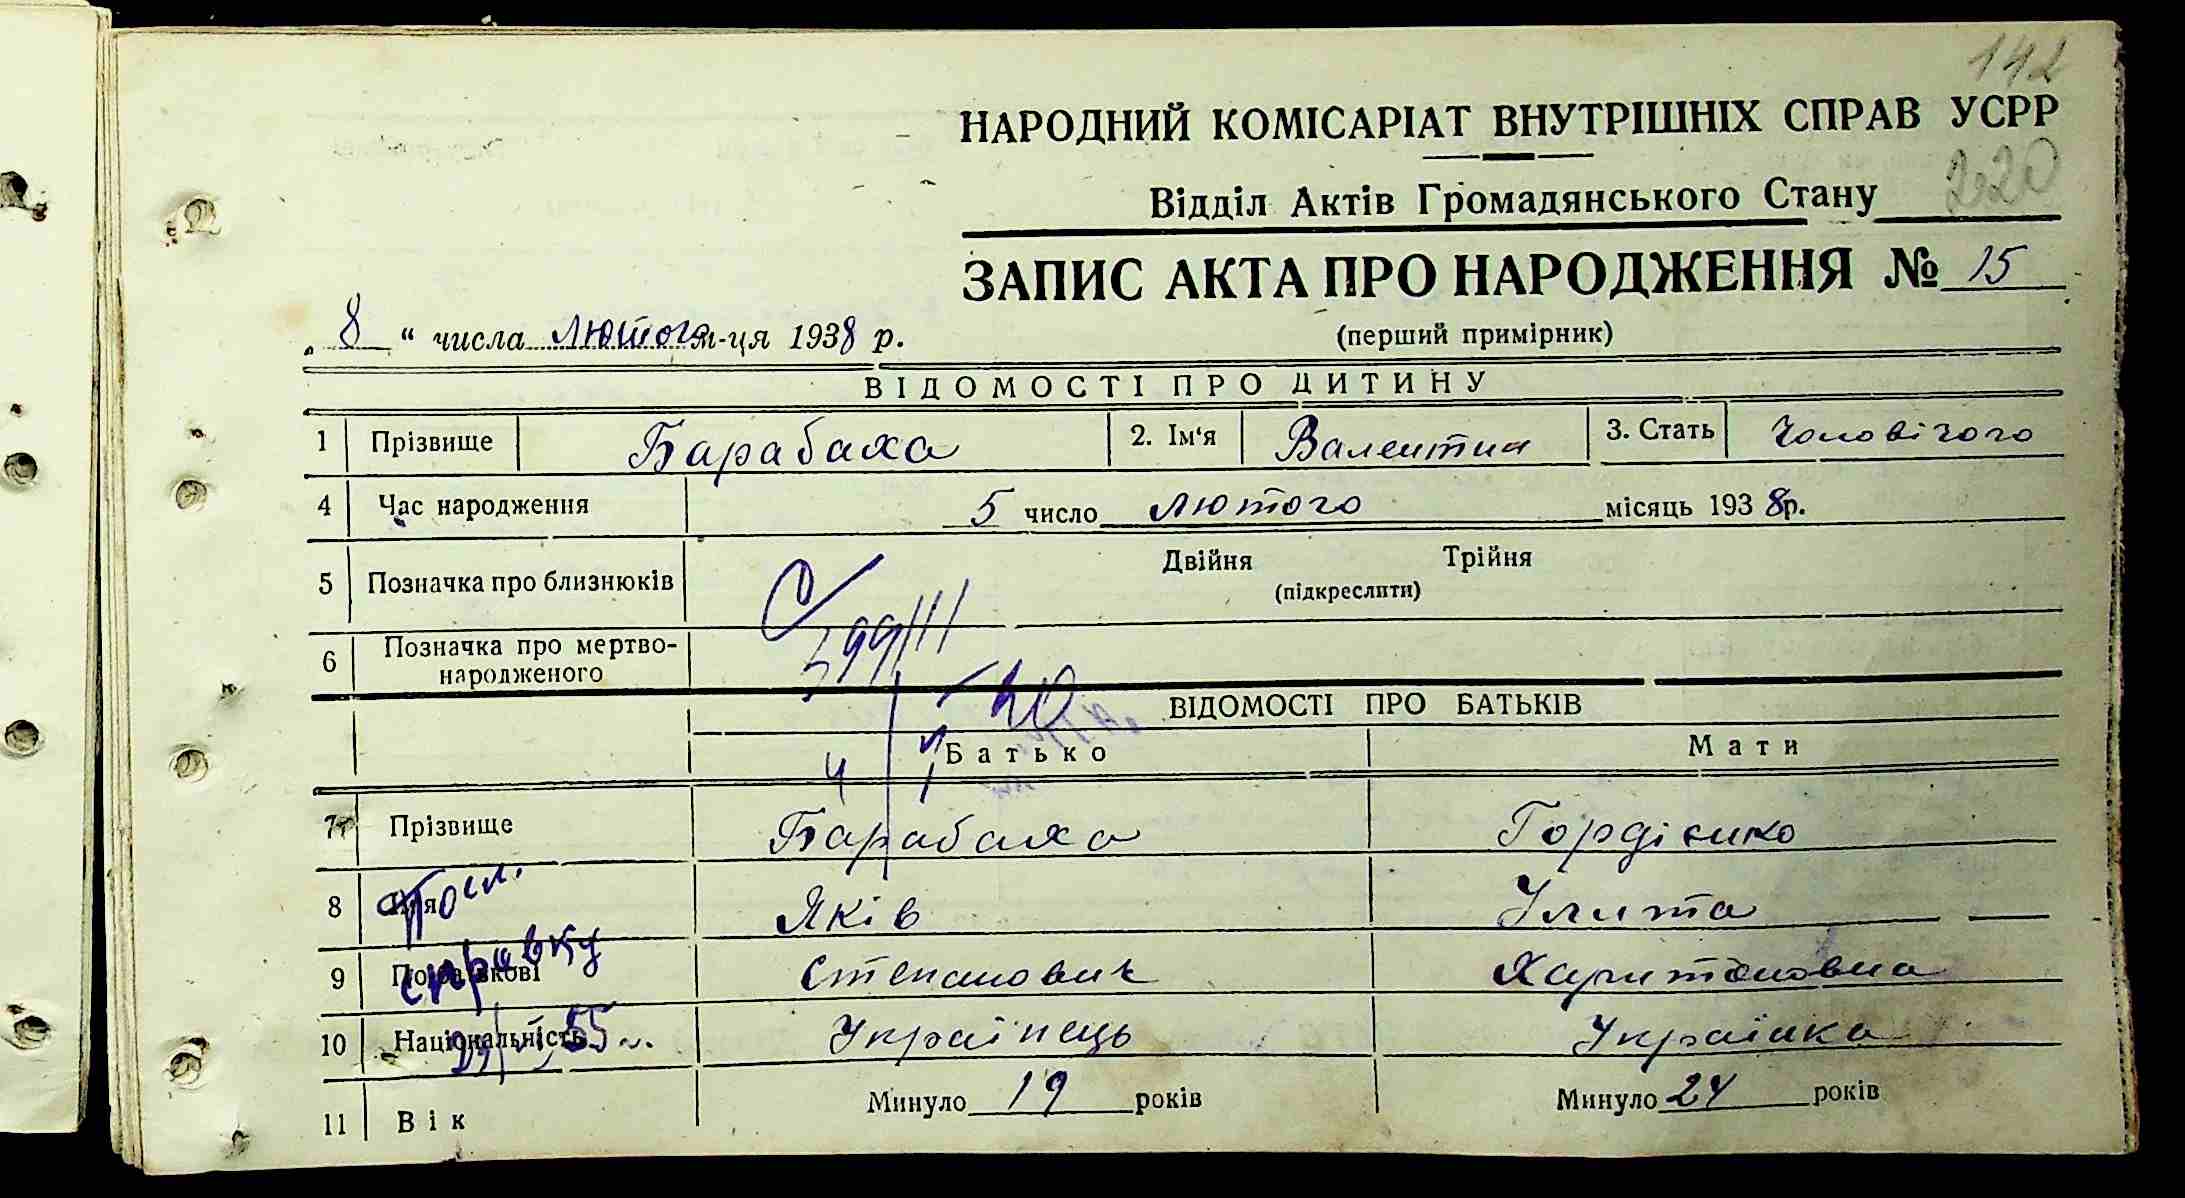 142
НАРОДНИЙ КОМІСАРІАТ ВНУТРІШНІХ СПРАВ УСРР
220
Відділ Актів Громадянського Стану
ЗАПИС АКТА ПРО НАРОДЖЕННЯ № 15
„ 8 “ числа лютого м-ця 1938 р.
(перший примірник)
ВІДОМОСТІ ПРО ДИТИНУ
1 Прізвище Барабаха 2. Ім'я Валентин 3. Стать Чоловічого
4 Час народження 5 число лютого місяць 1938 р.
5 Позначка про близнюків Двійня Трійня
(підкреслити)
6 Позначка про мертво-
народженого
ВІДОМОСТІ ПРО БАТЬКІВ
Батько Мати
7 Прізвище Барабаха Гордієнко
8 Ім'я Яків Улита
9 По батькові Степанович Харитоновна
10 Національність Українець Українка
11 Вік Минуло 19 років Минуло 24 років
справку